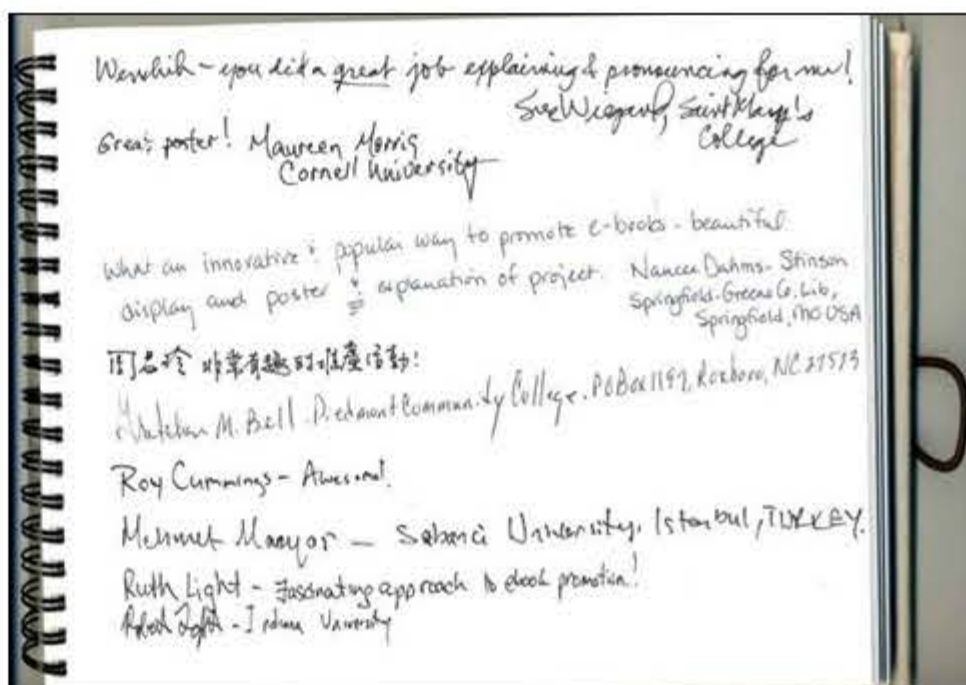 Wenchih - you did a great job explaining & pronouncing for me!
Sue Wiegand, Saint Mary's
College
Great poster! Maureen Morris
Cornell University
What an innovative & popular way to promote e-books - beautiful
display and poster & explanation of project. Nancee Dahms-Stinson
Springfield-Greene Co. Lib,
Springfield, MO USA
周名玲 非常有趣的推廣活動!
M. Bell. Piedmont Community College. PO Box 1197, Roxboro, NC 27573
Roy Cummings - Awesome!
Mehmet - Sabanci University, Istanbul, TURKEY.
Ruth Light - Fascinating approach to ebook promotion!
Robert Light - Indiana University